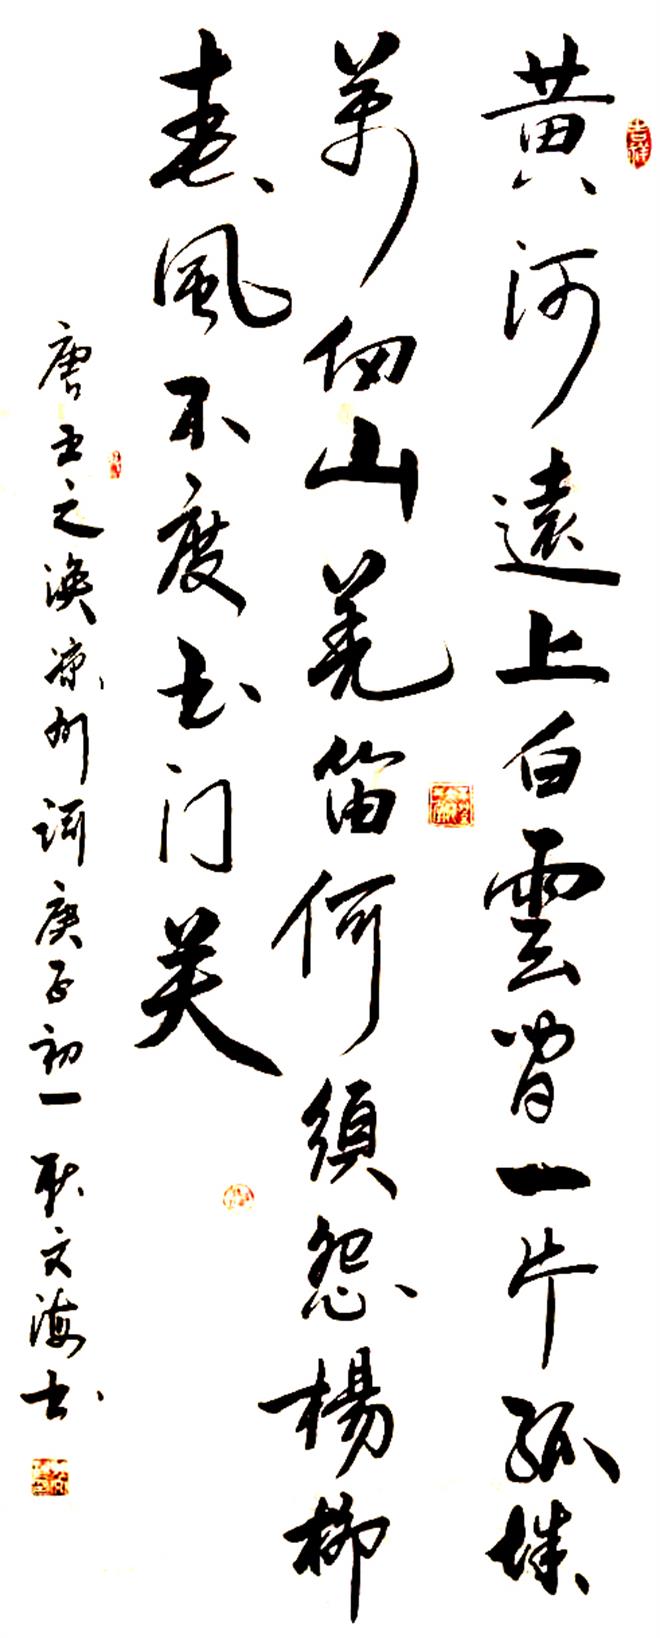 黄河遠上白雲間一片孤城
萬仞山羌笛何須怨楊柳
春風不度玉门关
唐王之涣凉州詞庚子初一耿文海书
吉祥